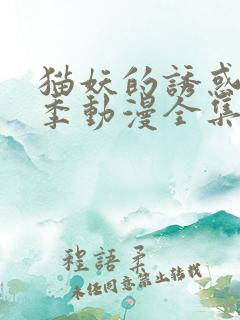 猫妖的誘惑
季動漫全集
程語柔
未经同意禁止转载